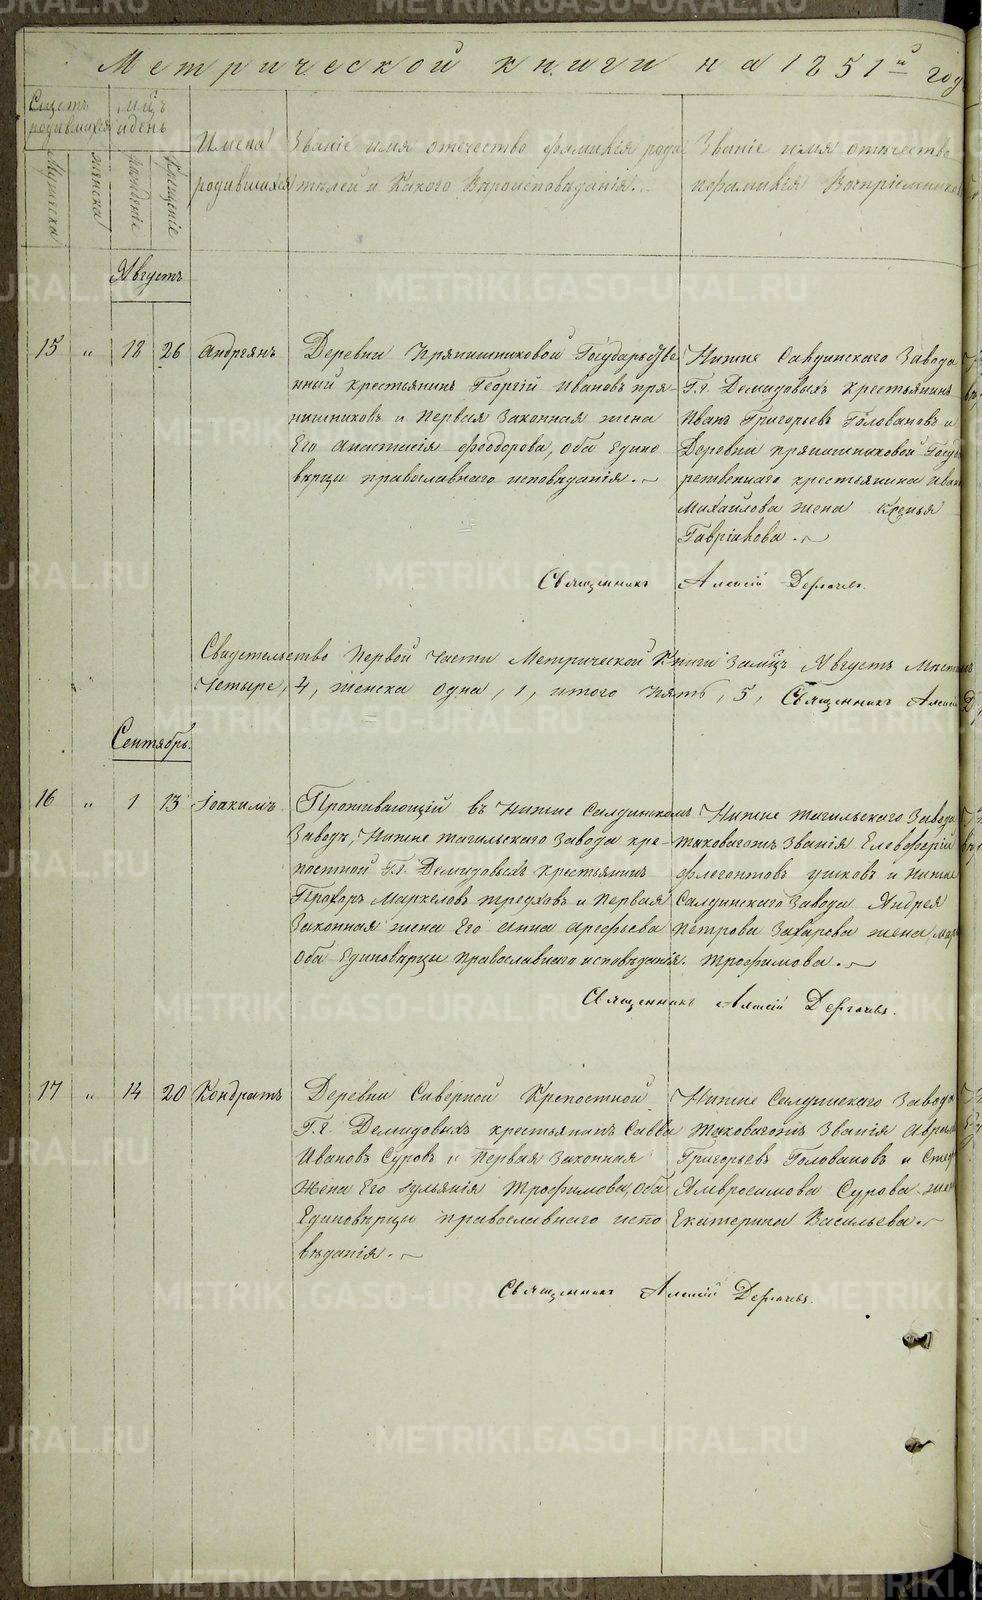 Метрической книги на 1851й год
Счетъ родившихся
Мѣцъ и день
Имена родившихся
Званіе имя отечество фамилія роди-
тилей и Какого Вероисповеданія.
Званіе имя отечество
и фамилія Воспріемников
Мужска
женска
рожденіе
Крещеніе
Августъ
15 " 18 26 Андреянъ
Деревни Пряпишниковой Государстве
нный крестьянинъ Георгій Ивановъ пря-
нишниковъ и первая Законная жена
Его Анастасія Феодорова, оба Едино
вѣрцы православнаго исповѣданія.
Нижне Салдинскаго Завода
Г.г. Демидовыхъ Крестьянинъ
Иванъ Григорьевъ Головановъ и
Деревни пряпишниковой Госуд
рственнаго крестьянина Иван
Михаилова жена Ксенья
Гаврилова.
Священникъ Алексій Дерячевъ.
Свидетельство Первой части Метрической Книги За мѣцъ Августъ
Четыре, 4, женска одна, 1, итого пять, 5, Священникъ Алексій
Сентябрь.
16 " 1 13 Іоакимъ
Проживающій въ Нижне Салдинскомъ
Заводѣ, Нижне тагильскаго Завода кре-
постной Г.г. Демидовыхъ крестьянинъ
Прокоръ Маркеловъ треуховъ и Первая
Законная жена Его Анна Арефьева
Оба Единоверцы Православнаго исповѣданія.
Нижне тагильскаго Завода
таковагожъ Званія Елевферій
Флегонтовъ ушковъ и Нижне
Салдинскаго Завода Андрея
Петрова Захарова жена Мар
Трофимова.
Священникъ Алексій Дерячевъ.
17 " 14 20 Кондратъ
Деревни Северной Крепостной
Г.г. Демидовыхъ крестьянинъ Савва
Ивановъ Суровъ и первая Законная
Жена Его Ульянія Трофимова, оба
Единовѣрцы православнаго испо
вѣданія.
Нижне Салдинскаго Завода
таковагожъ Званія Аврам
Григорьевъ Головановъ и Стеф
Амвросимова Сурова жен
Екатерина Васильева.
Священникъ Алексій Дерячевъ.
METRIKI.GASO-URAL.RU